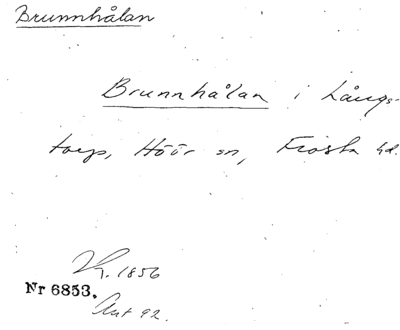 Brunnhålan
Brunnhålan i Långs-
torp, Höör sn, Frosta hd.
K. 1856
Nr 6853.
Ant 92.